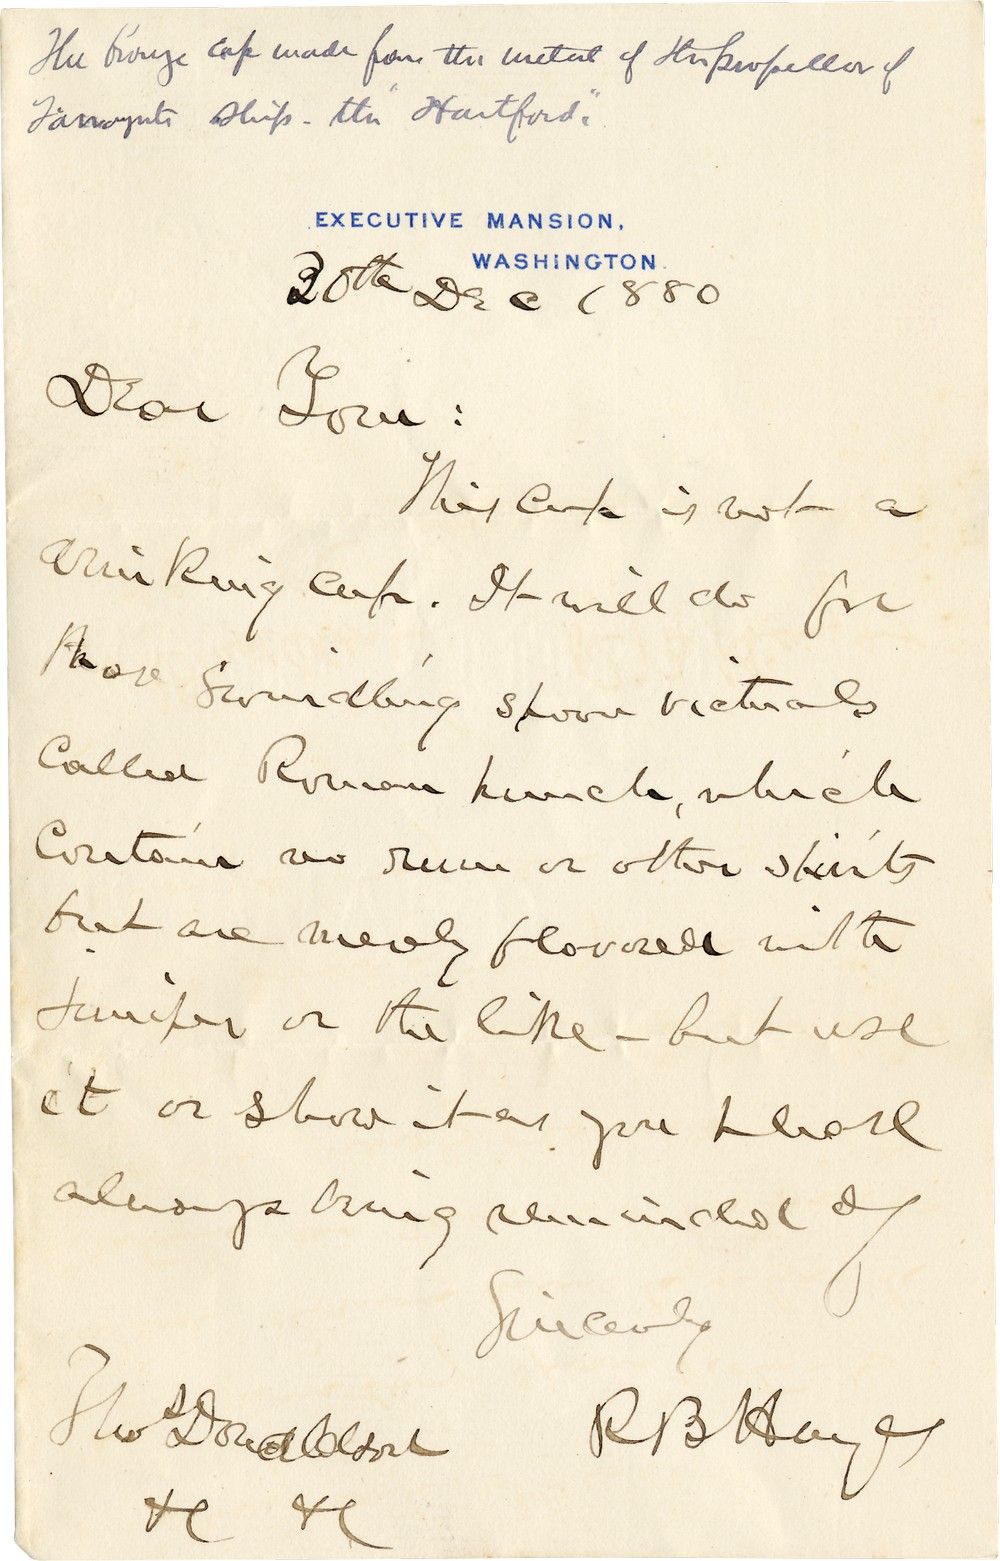 The bronze cup made from the metal of the propellor of
Farragut's ship - the "Hartford."
EXECUTIVE MANSION,
WASHINGTON.
30th Dec 1880
Dear Tom:
This cup is not a
drinking cup. It will do for
those swindling spoon victuals
called Roman punch, which
contain no rum or other spirits
but are merely flavored with
Juniper or the like - but use
it or show it as you please
always being reminded of
Sincerely
R B Hayes
Thos Donaldson
&c &c